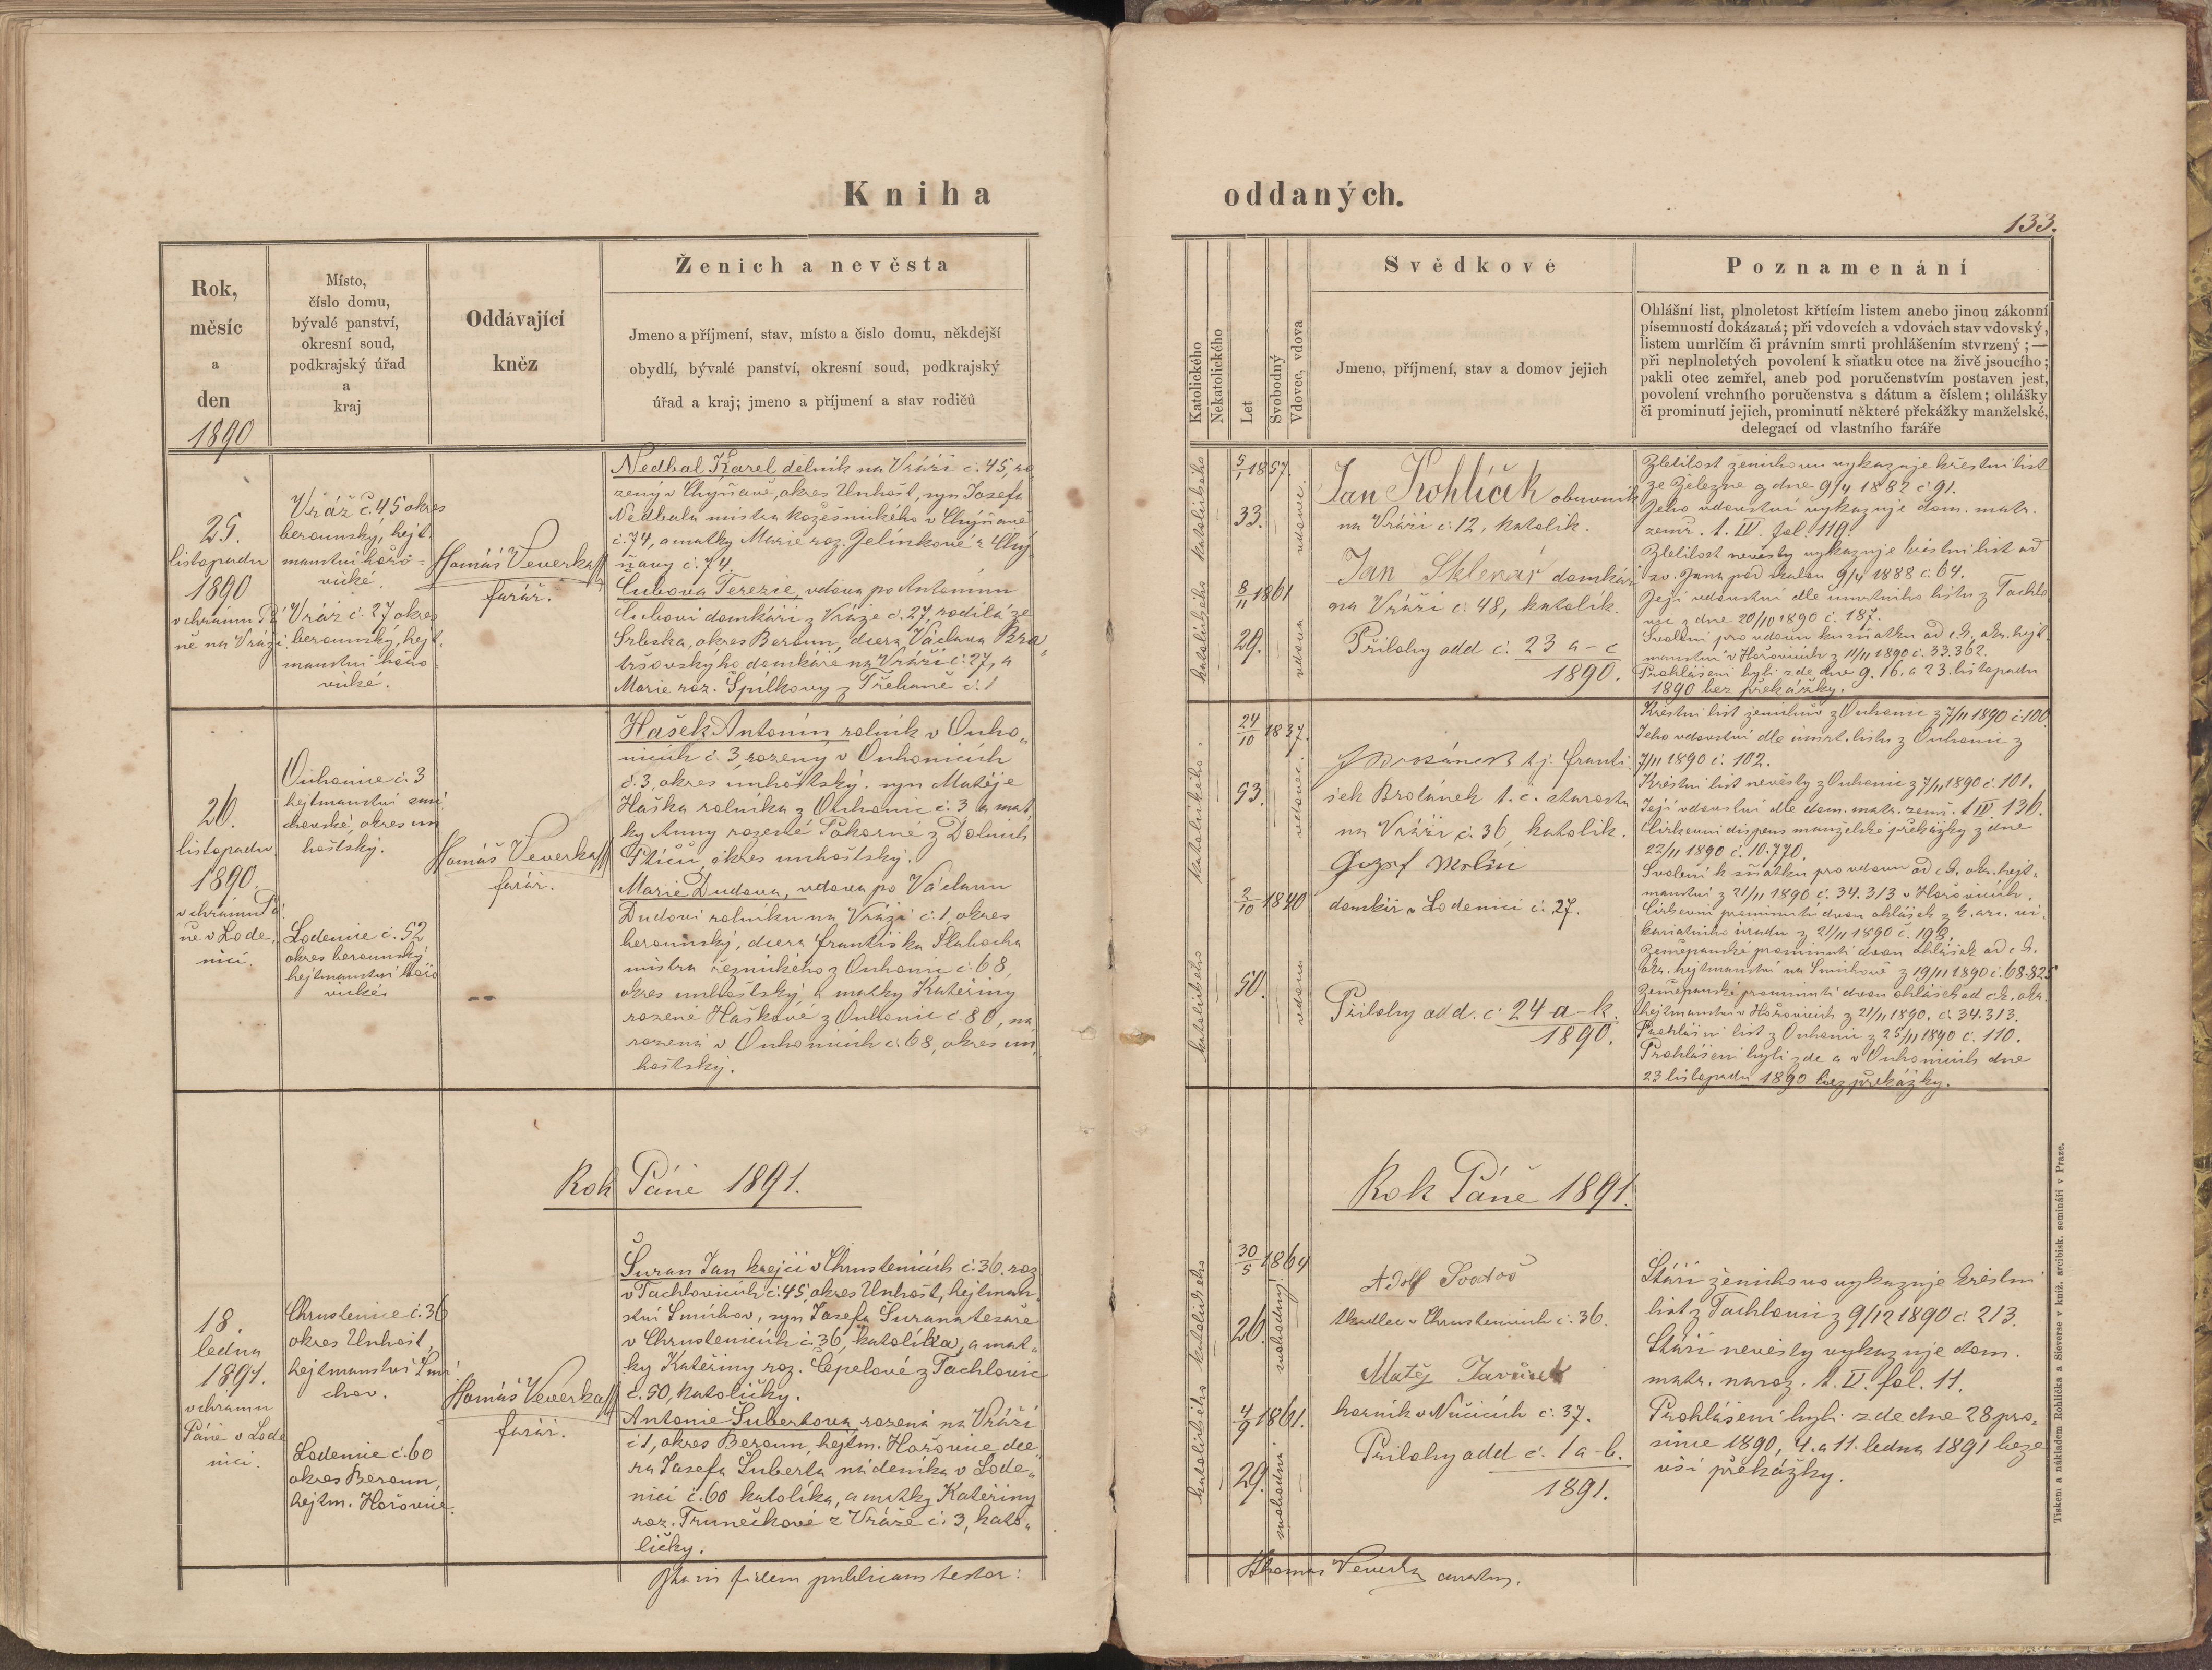 Kniha
oddaných.
133.
Rok,
měsíc
a
den
1890
Místo,
číslo domu,
bývalé panství,
okresní soud,
podkrajský úřad
a
kraj
Oddávající
kněz
Ženich a nevěsta
Jmeno a příjmení, stav, místo a číslo domu, někdejší
obydlí, bývalé panství, okresní soud, podkrajský
úřad a kraj; jmeno a příjmení a stav rodičů
Katolického
Nekatolického
Let
Svobodný
Vdovec, vdova
Svědkové
Jmeno, příjmení, stav a domov jejich
Poznamenání
Ohlášní list, plnoletost křtícím listem anebo jinou zákonní
písemností dokázaná; při vdovcích a vdovách stav vdovský,
listem umrlčím či právním smrti prohlášením stvrzený; —
při neplnoletých povolení k sňatku otce na živě jsoucího;
pakli otec zemřel, aneb pod poručenstvím postaven jest,
povolení vrchního poručenstva s dátum a číslem; ohlášky
či prominutí jejich, prominutí některé překážky manželské,
delegací od vlastního faráře
25.
listopadu
1890
v chrámu Pá
ně na Vráži
Vráž č. 45 okres
berounský, hejt.
manství hořo-
vické.
Vráž č. 27 okres
berounský, hejt.
manství hořo
vické.
Tomáš Veverka
farář.
Nedbal Karel dělník na Vráži č. 45, ro
zený v Chyňavě, okres Unhošť, syn Josefa
Nedbala mistra kožešnického v Chyňavě
č. 74, a matky Marie roz. Jelínkové z Chy
ňavy č. 74.
Cubova Terezie, vdova po Antonínu
Cubovi domkáři z Vráže č. 27, rodilá ze
Srbska, okres Beroun, dcera Václava Bra
domkáře na Vráži č. 27, a
Marie roz. Špilkovy z Třebaně č. 1
katolického katolického
5/1 1857.
33.
vdovec
8/11 1861
29.
vdova
Jan Kohlíček obuvník
na Vráži č. 12, katolík.
Jan Sklenář domkář
na Vráži č. 48, katolík.
Přílohy odd č. 23 a-c
1890.
Zletilost ženichovu vykazuje křestní list
ze Železné z dne 9/4 1882 č. 91.
Jeho vdovství vykazuje dom. matr.
zemř. t. IV. fol. 119.
Zletilost nevěsty vykazuje křestní list od
sv. Jana pod skalou 9/4 1888 č. 64.
Její vdovství dle úmrtního listu z Tachlo
vic z dne 20/10 1890 č. 187.
Svolení pro vdovu ku sňatku od c.k. okr. hejt
manství v Hořovicích z 11/11 1890 č. 33.362.
Prohlášeni byli zde dne 9. 16. a 23. listopadu
1890 bez překážky.
26.
listopadu
1890.
v chrámu Pá
ně v Lode
nici.
Ouhonice č. 3
hejtmanství smí
chovské, okres un
hoštský.
Lodenice č. 52
okres berounský
hejtmanství hořo
vické
Tomáš Veverka
farář.
Hašek Antonín rolník v Ouho„
nicích č. 3, rozený v Ouhonicích
č. 3, okres unhoštský. syn Matěje
Haška rolníka z Ouhonic č. 3 a mat
ky Anny rozené Pokorné z Dolních
Pticů, okres unhoštský.
Marie Dudova, vdova po Václavu
Dudovi rolníku na Vráži č. 1, okres
berounský, dcera Františka
mistra řeznického z Ouhonic č. 68,
okres unhoštský a matky Kateřiny
rozené Haškové z Ouhonic č. 80, na
rozená v Ouhonicích č. 68, okres un
hoštský.
katolického katolického.
24/10 1837.
53.
vdovec.
2/10 1840
50.
vdova
tj. Franti
šek Brotánek t. č. starosta
na Vráži č. 36, katolík.
domkář v Lodenici č. 27.
Přílohy odd. č. 24 a-k.
1890.
Křestní list ženichův z Ouhonic z 7/11 1890 č. 100
Jeho vdovství dle úmrt. listu z Ouhonic z
7/11 1890 č. 102.
Křestní list nevěsty z Ouhonic z 7/11 1890 č. 101.
Její vdovství dle dom. matr. zemř. t. IV 136.
Církevní dispens manželské překážky z dne
22/11 1890 č. 10.770.
Svolení k sňatku pro vdovu od c.k. okr. hejt-
manství z 21/11 1890 č. 34.313 v Hořovicích.
Církevní prominutí dvou ohlášek z k. arc. vi
kariatního úřadu z 21/11 1890 č. 198.
Zeměpanské prominutí dvou ohlášek od c.k.
okr. hejtmanství na Smíchově z 19/11 1890 č. 68.825
Zeměpanské prominutí dvou ohlášek od c.k. okr.
hejtmanství v Hořovicích z 21/11 1890. č. 34.313.
Prohlášní list z Ouhonic z 25/11 1890 č. 110.
Prohlášeni byli zde a v Ouhonicích dne
23 listopadu 1890 bez překážky.
Rok Páně 1891.
Rok Páně 1891.
18.
ledna
1891.
v chrámu
Páně v Lode
nici.
Chrustenice č. 36
okres Unhošť,
hejtmanství Smí
chov.
Lodenice č. 60
okres Beroun,
hejtm. Hořovice.
Tomáš Veverka
farář.
Šuran Jan krejčí v Chrustenicích č. 36. roz
v Tachlovicích č. 45, okres Unhošť, hejtman„
ství Smíchov, syn Josefa Šurana tesaře
v Chrustenicích č. 36, katolíka, a mat„
ky Kateřiny roz. Čapelové z Tachlovic
č. 50, katoličky.
Antonie Šubertova, rozená na Vráži
č 1, okres Beroun, hejtm. Hořovice dce
ra Josefa Šuberta nádeníka v Lode„
nici č. 60 katolíka, a matky Kateřiny
roz. Trunečkové z Vráže č. 3, kato„
ličky.
katolického katolického
30/5 1864
26.
svobodný.
4/9 1861.
29.
svobodná.
Adolf Svoboď
v Chrustenicích č. 36.
Matěj Javůrek
horník v Nučicích č. 37.
Přílohy odd č. 1 a-b.
1891.
Stáří ženichovo vykazuje křestní
list z Tachlovic z 9/12 1890 č. 213.
Stáří nevěsty vykazuje dom.
matr. naroz. t. II. fol. 11.
Prohlášeni byli zde dne 28 pro„
since 1890, 4. a 11. ledna 1891 beze
vší překážky.
Ita in fidem publicam testor:
Thomas Veverka curatus.
Tiskem a nákladem Rohlíčka a Sieverse v kníž. arcibisk. semináři v Praze.